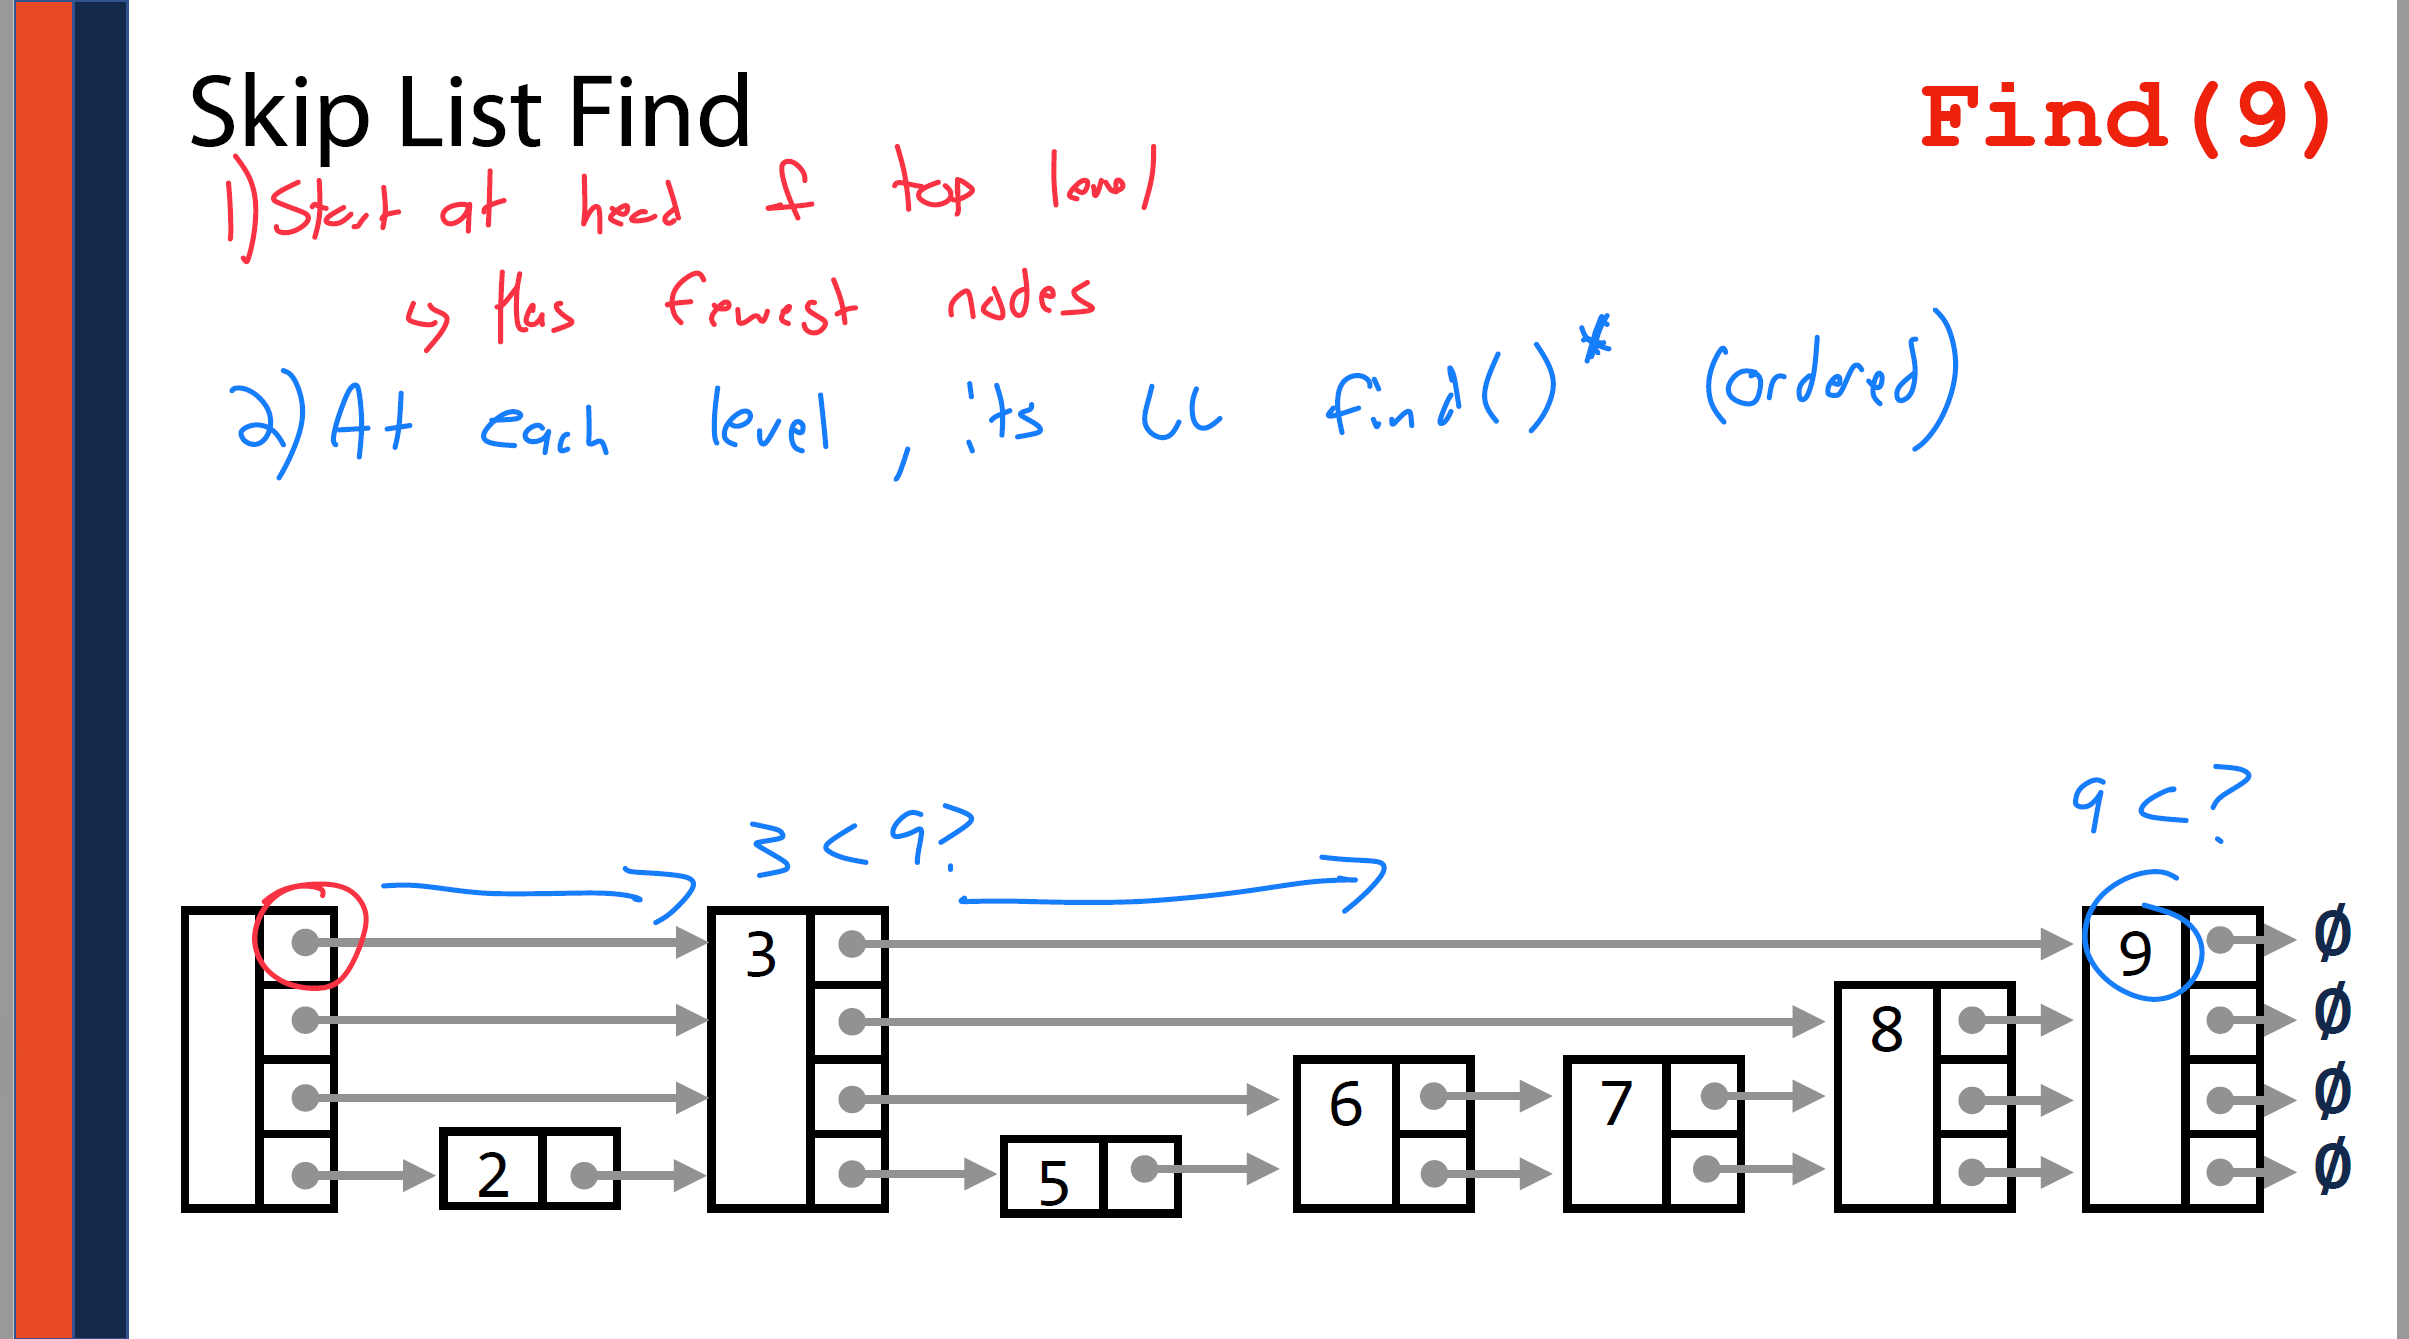 Skip List Find
Find(9)
1) Start at head of top level
↳ Has fewest nodes
2) At each level, its LL find()* (ordered)
3 < 9?
9 < ?
3 9 ∅
8 ∅
6 7 ∅
2 5 ∅